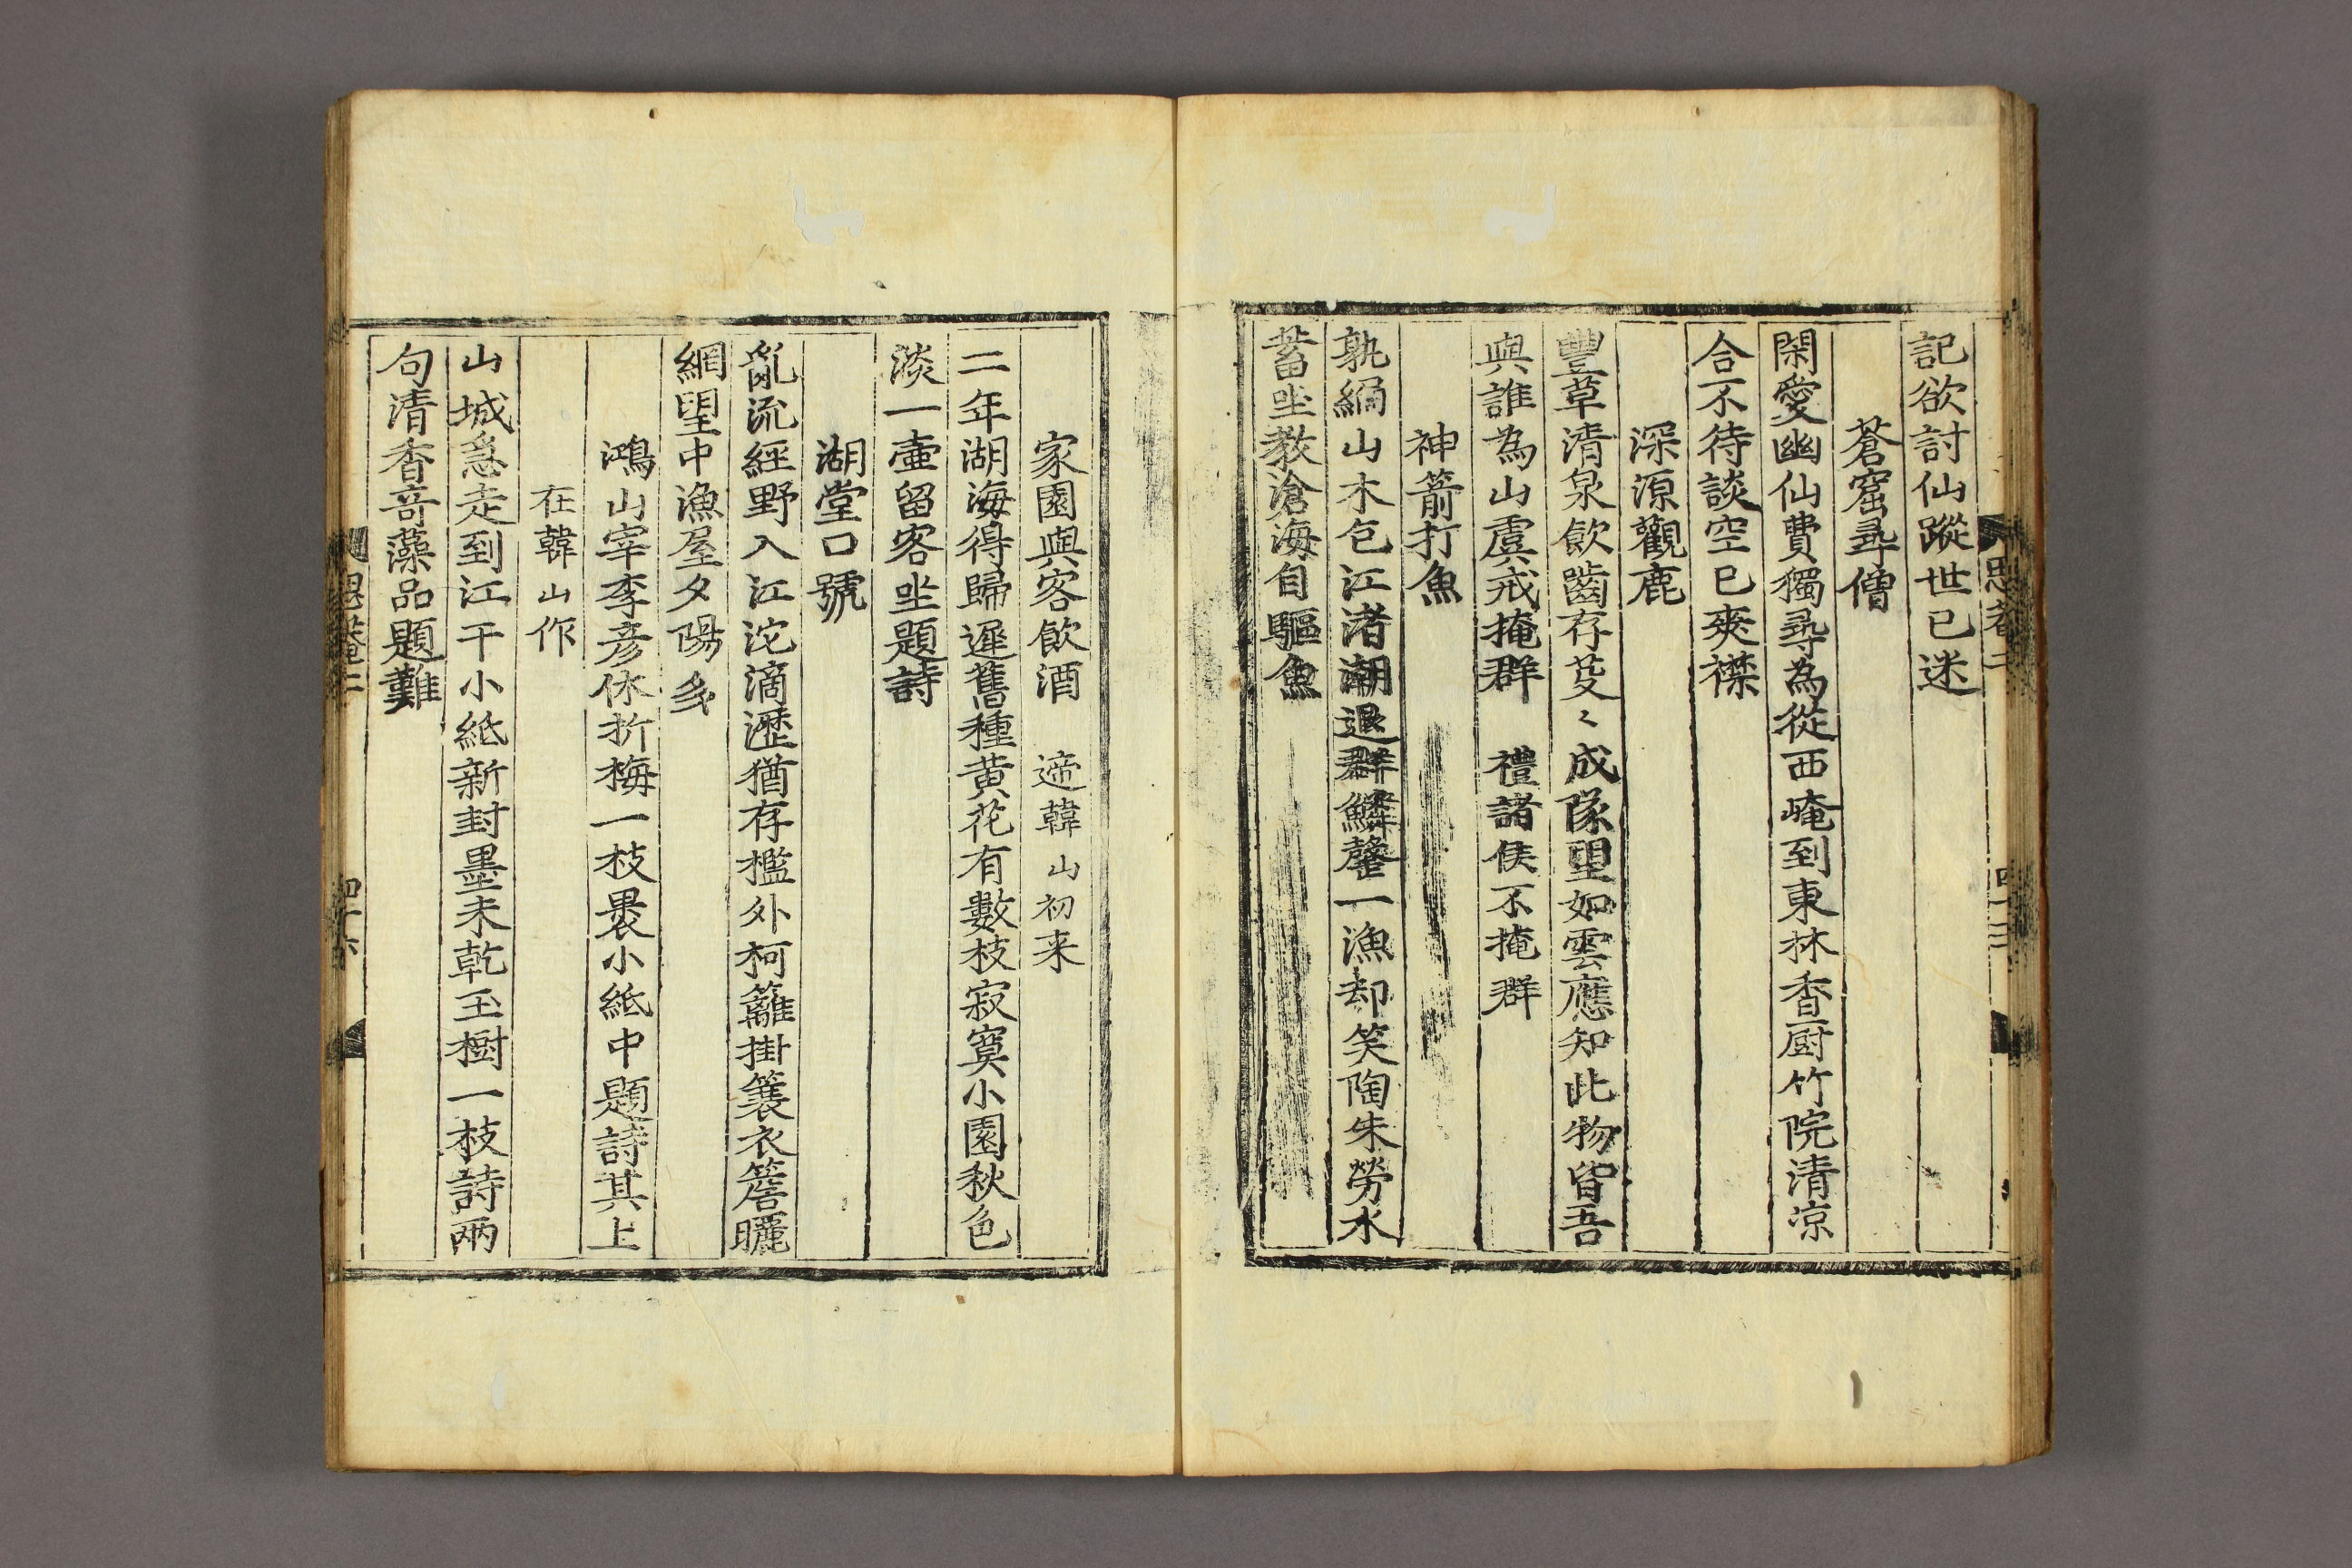 記欲討仙蹤世已迷
蒼窟尋僧
閑愛幽仙費獨尋為從西崦到東林香厨竹院清凉
合不待談空已爽襟
深源觀鹿
豐草清泉飲齧存芟〻成隊望如雲應知此物皆吾
與誰為山虞戒掩群 禮諸侯不掩群
神箭打魚
孰綱山木包江渚潮退群鱗罄一漁却笑陶朱勞水
蓄坐教滄海自驅魚
家園與客飲酒 遞韓山初来
二年湖海得歸遲舊種黄花有數枝寂寞小園秋色
淡一壷留客坐題詩
湖堂口號
亂流經野入江沱滴瀝猶存檻外柯籬掛簑衣簷曬
網望中漁屋夕陽多
鴻山宰李彦休折梅一枝褁小紙中題詩其上
在韓山作
山城急走到江干小紙新封墨未乾玉樹一枝詩兩
句清香奇藻品題難